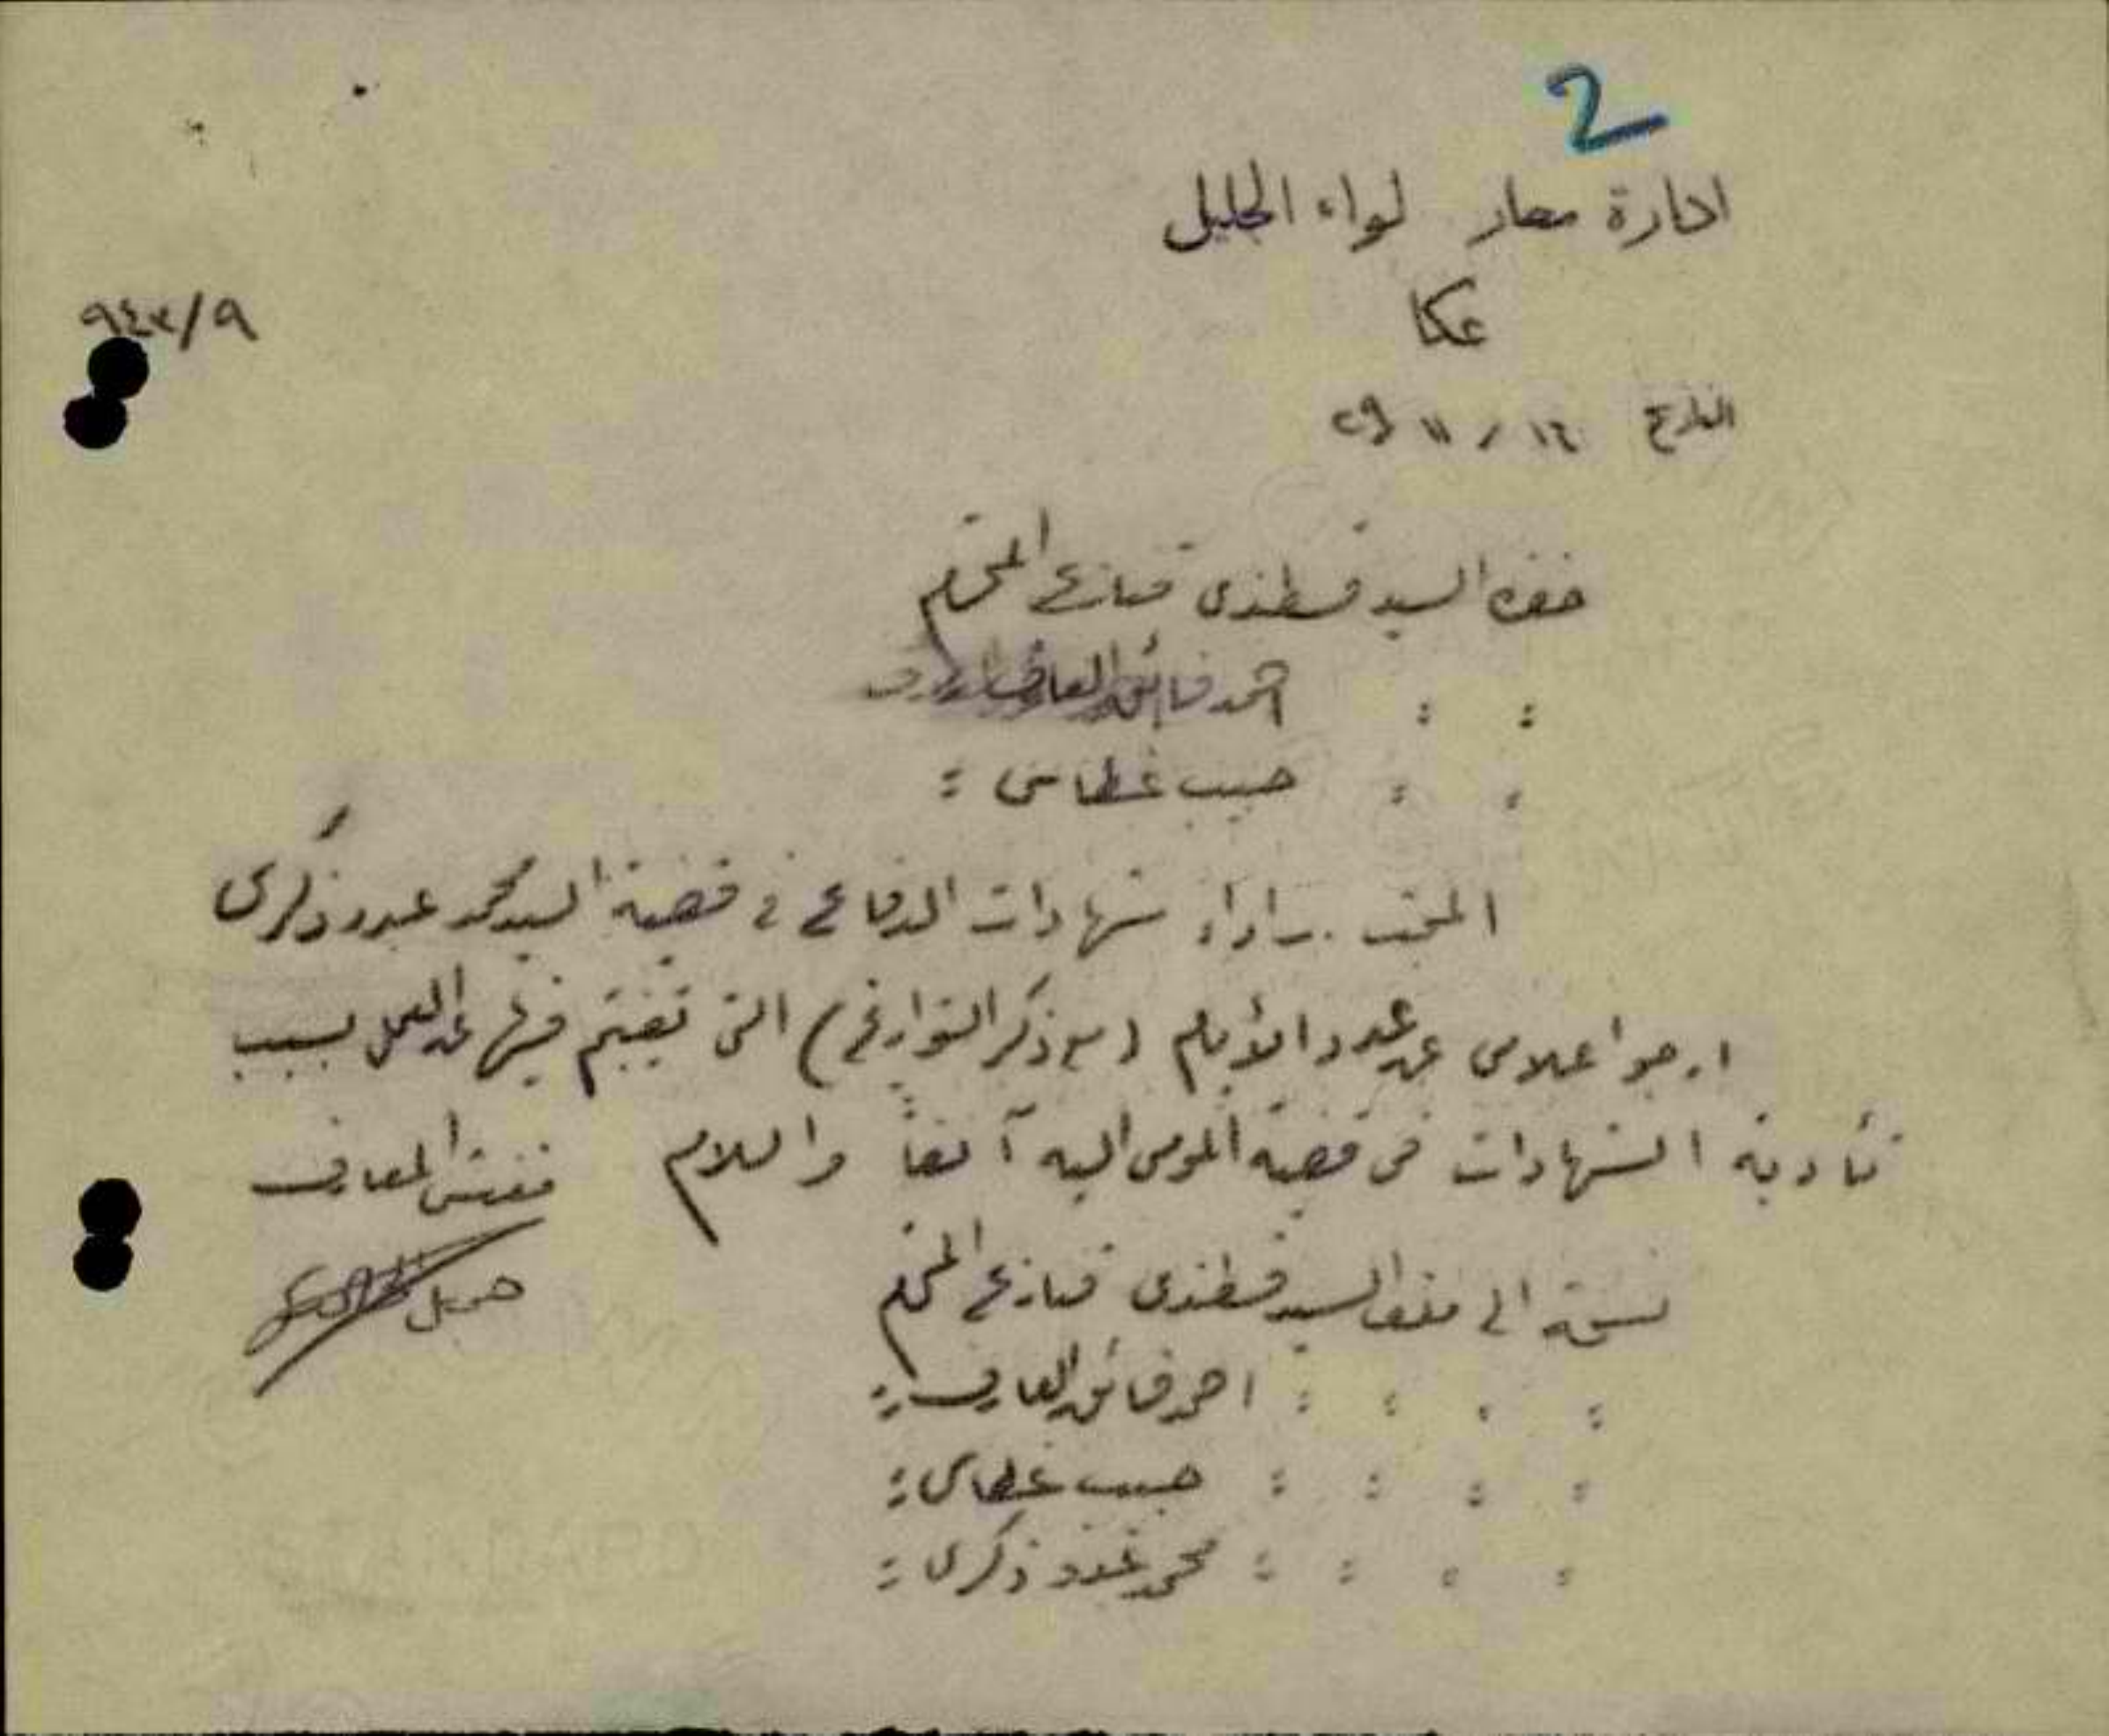 2
ادارة معارف لواء الجليل
عكا
٩٤٣/٩
التاريخ ١٦ / ١١ ٢٩
حضرة السيد قسطندي قنازع المحترم
: : احمد فائق العارف
: : حبيب غطاس :
المختص باداء شهادات الدفاع في قضية السيد محمد عبده ذكرى
ارجو اعلامي عن عدد الأيام (مع ذكر التواريخ) التي تغيبتم فيها عن العمل بسبب
تأدية الشهادات في قضية المومى اليه آنفاً والسلام
مفتش المعارف
جميل
نسخة الى ملف السيد قسطندي قنازع المحترم
: : : : احمد فائق العارف :
: : : : حبيب غطاس :
: : : : محمد عبده ذكرى :